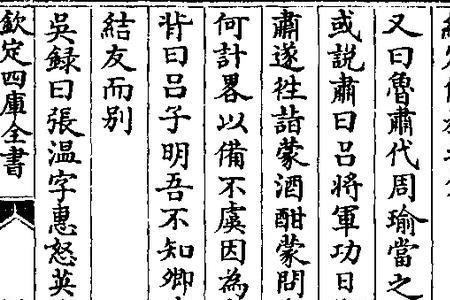 又曰魯肅代周瑜當之
或說肅曰呂將軍功日
肅遂徃詣蒙酒酣蒙問
何計畧以備不虞因為
背曰呂子明吾不知卿
結友而别
吳録曰張温字惠恕英
欽定四庫全書